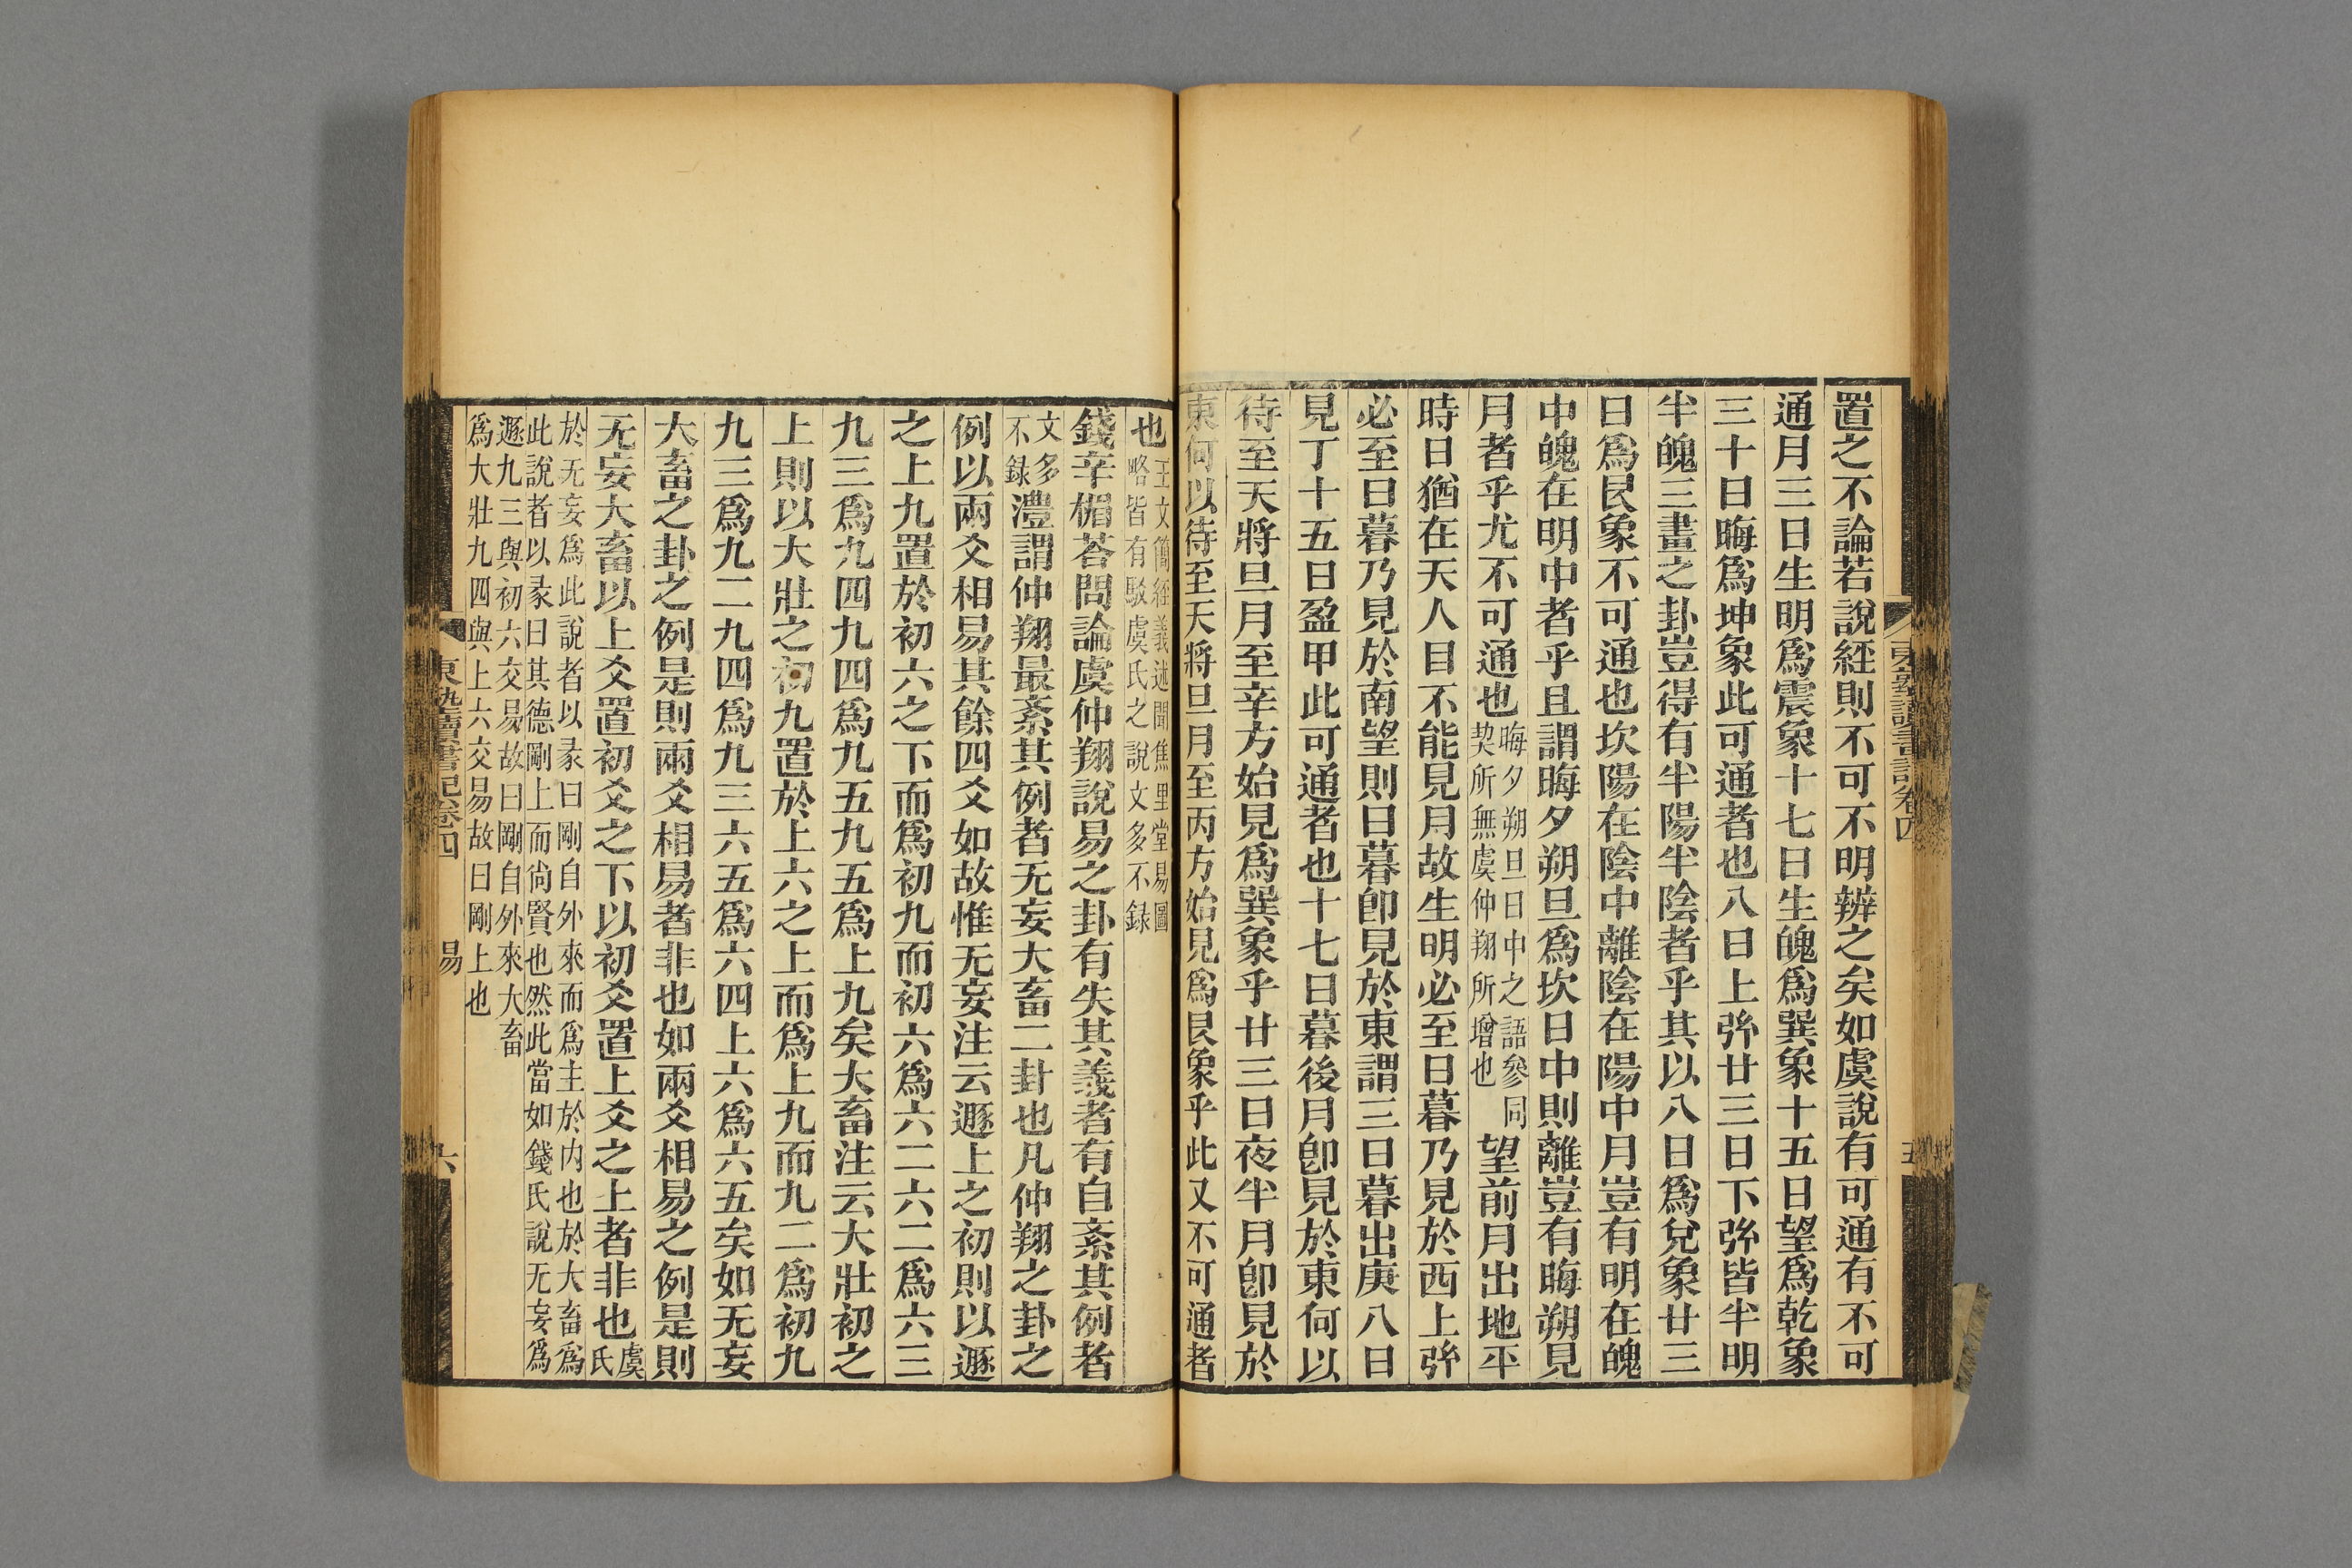 東塾讀書記卷四
五
置之不論若說經則不可不明辨之矣如虞說有可通有不可
通月三日生明爲震象十七日生魄爲巽象十五日望爲乾象
三十日晦爲坤象此可通者也八日上弦廿三日下弦皆半明
半魄三畫之卦豈得有半陽半陰者乎其以八日爲兌象廿三
日爲艮象不可通也坎陽在陰中離陰在陽中月豈有明在魄
中魄在明中者乎且謂晦夕朔旦爲坎日中則離豈有晦朔見
月者乎尤不可通也晦夕朔旦日中之語參同契所無虞仲翔所增也望前月出地平
時日猶在天人目不能見月故生明必至日暮乃見於西上弦
必至日暮乃見於南望則日暮卽見於東謂三日暮出庚八日
見丁十五日盈甲此可通者也十七日暮後月卽見於東何以
待至天將旦月至辛方始見爲巽象乎廿三日夜半月卽見於
東何以待至天將旦月至丙方始見爲艮象乎此又不可通者
也王文簡經義述聞焦里堂易圖略皆有駁虞氏之說文多不錄
錢辛楣荅問論虞仲翔說易之卦有失其義者有自紊其例者
文多不錄澧謂仲翔最紊其例者无妄大畜二卦也凡仲翔之卦之
例以兩爻相易其餘四爻如故惟无妄注云遯上之初則以遯
之上九置於初六之下而爲初九而初六爲六二六二爲六三
九三爲九四九四爲九五九五爲上九矣大畜注云大壯初之
上則以大壯之初九置於上六之上而爲上九而九二爲初九
九三爲九二九四爲九三六五爲六四上六爲六五矣如无妄
大畜之卦之例是則兩爻相易者非也如兩爻相易之例是則
无妄大畜以上爻置初爻之下以初爻置上爻之上者非也虞氏
於无妄爲此說者以彖曰剛自外來而爲主於內也於大畜爲
此說者以彖曰其德剛上而尙賢也然此當如錢氏說无妄爲
遯九三與初六交易故曰剛自外來大畜
爲大壯九四與上六交易故曰剛上也
東塾讀書記卷四
易
六